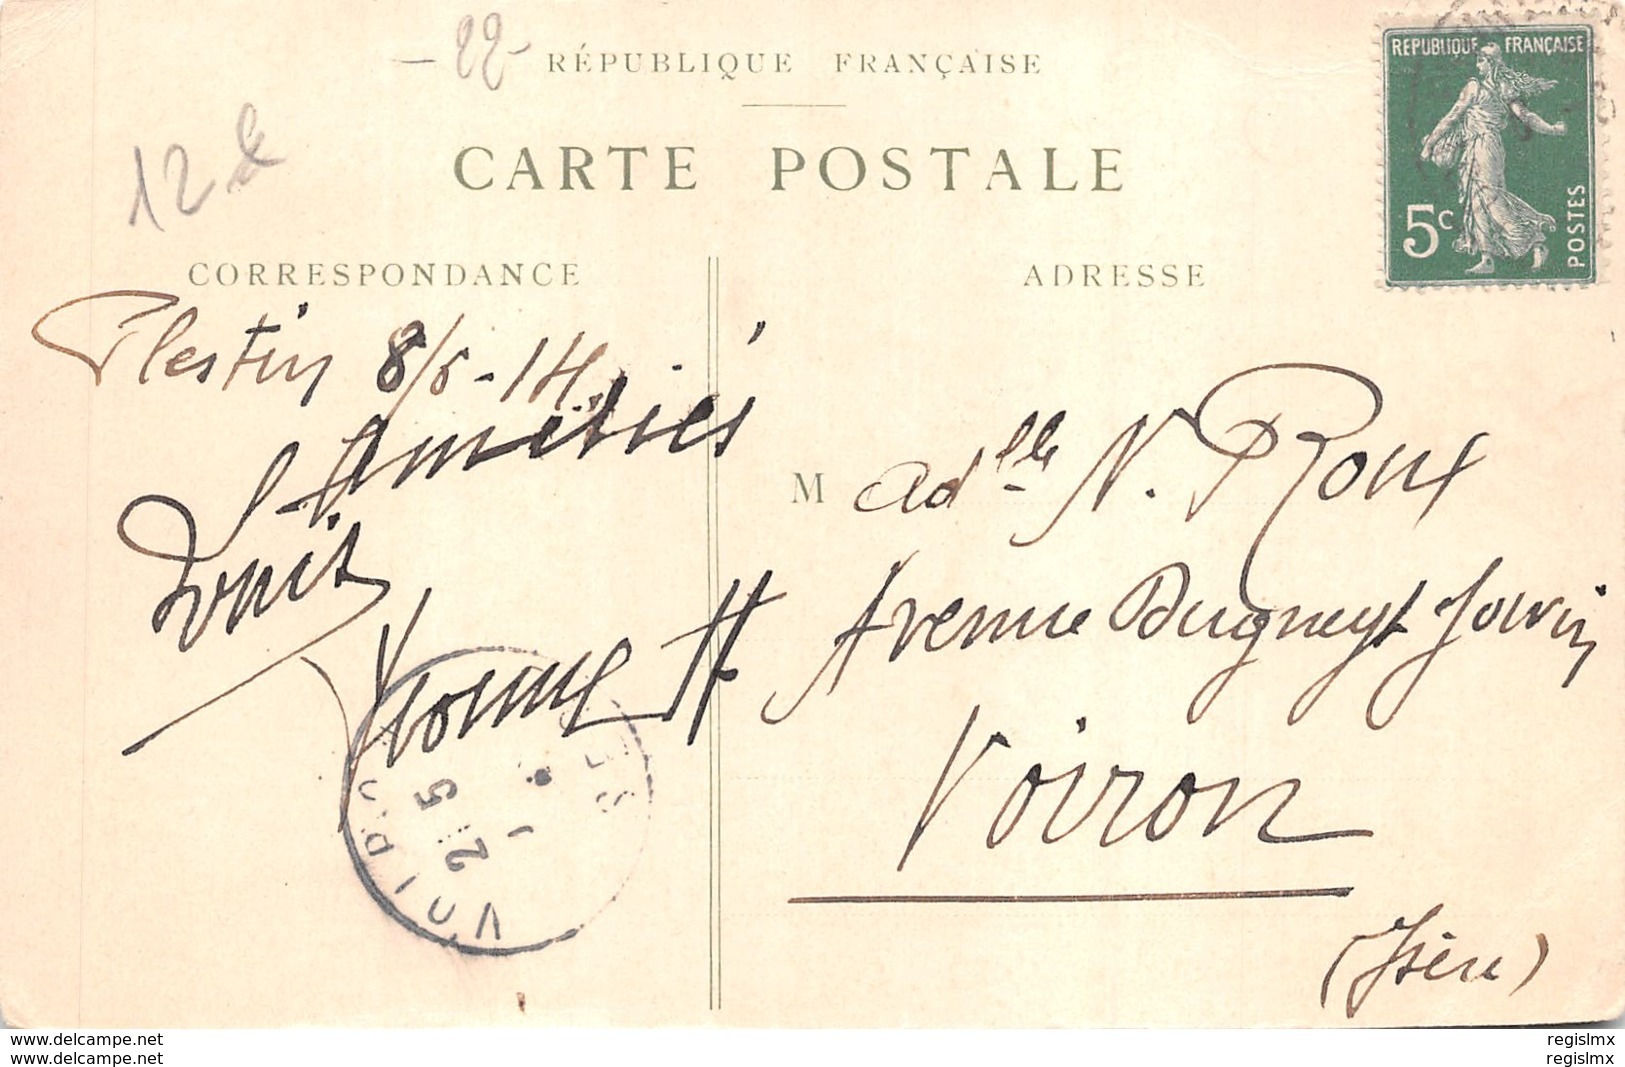 - 22 -
RÉPUBLIQUE FRANÇAISE
CARTE POSTALE
12
CORRESPONDANCE
ADRESSE
REPUBLIQUE FRANÇAISE
5c
POSTES
Plestin 8/5-14
Amitiés
Yvonne H
M ad^lle N. Roux
Avenue Dugueyt Jouvin
Voiron
(Isère)
VOIRON
21
5
www.delcampe.net
www.delcampe.net
regislmx
regislmx